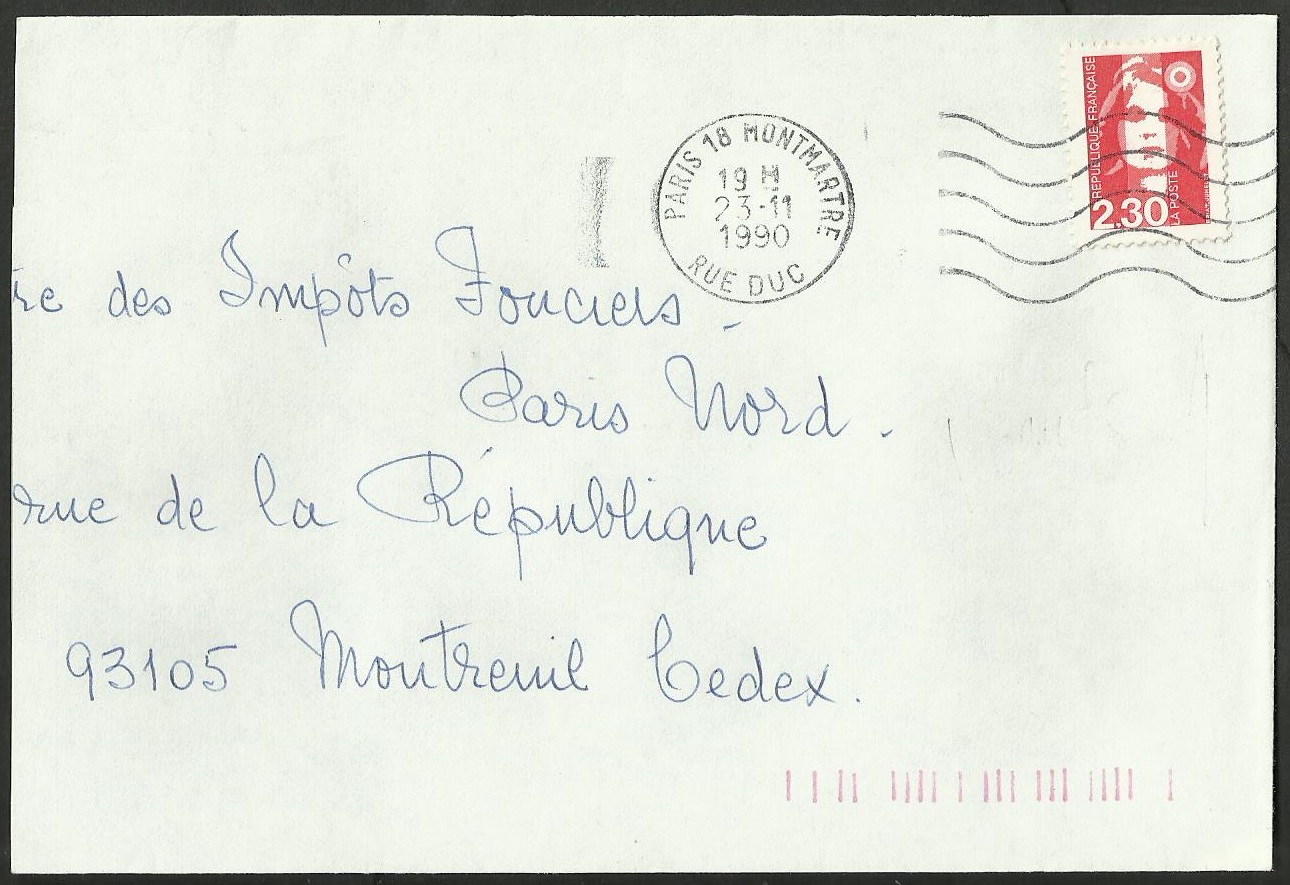 RÉPUBLIQUE FRANÇAISE
2,30
LA POSTE
PARIS 18 MONTMARTRE
19 H
23-11
1990
RUE DUC
re des Impôts Fonciers -
Paris Nord.
rue de la République
93105 Montreuil Cedex.